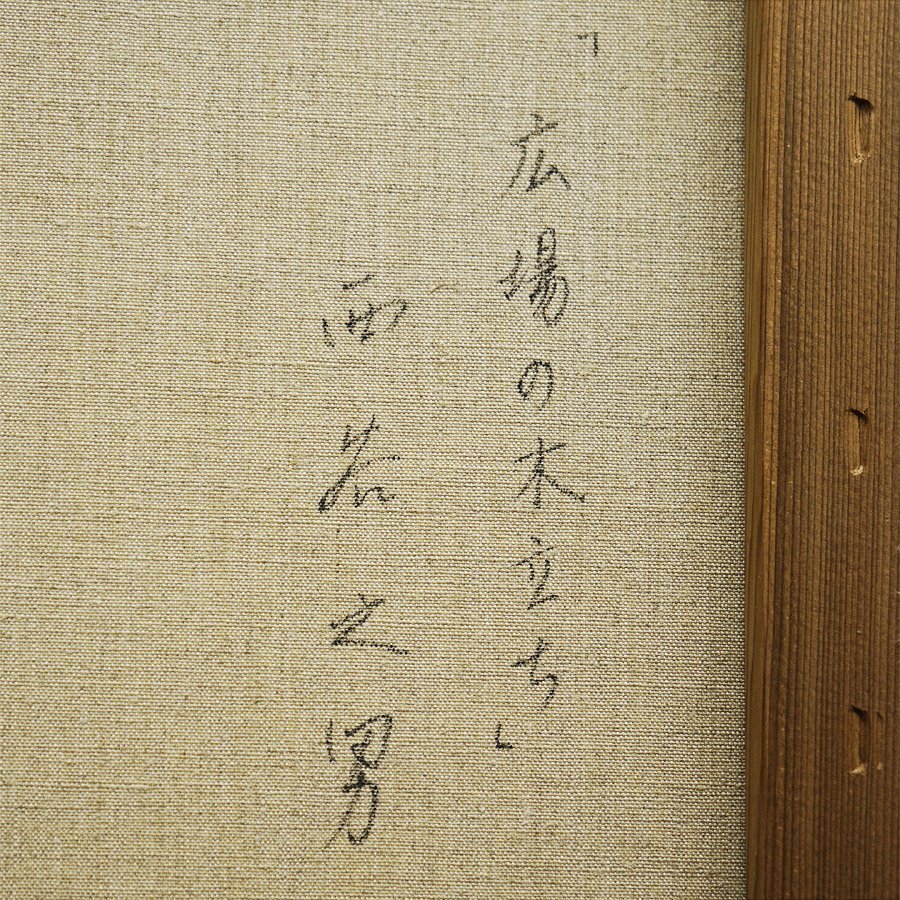 「広場の木立ち」
西岩之男